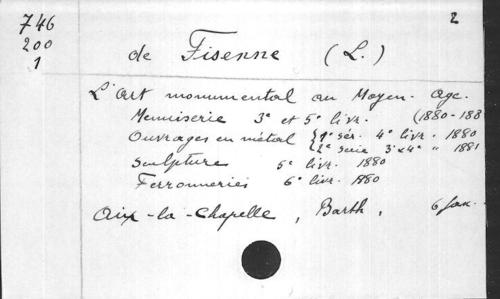 746 2
200
1
de Fisenne (L.)
L'art monumental au Moyen-Age.
Menuiserie 3e et 5e livr. (1880-188
Ouvrages en métal { 1e sér. 4e livr. 1880
{ 2e série 3e & 4e " 1881
Sculpture 5e livr. 1880
Ferronneries 6e livr. 1880
Aix-la-Chapelle, Barth, 6